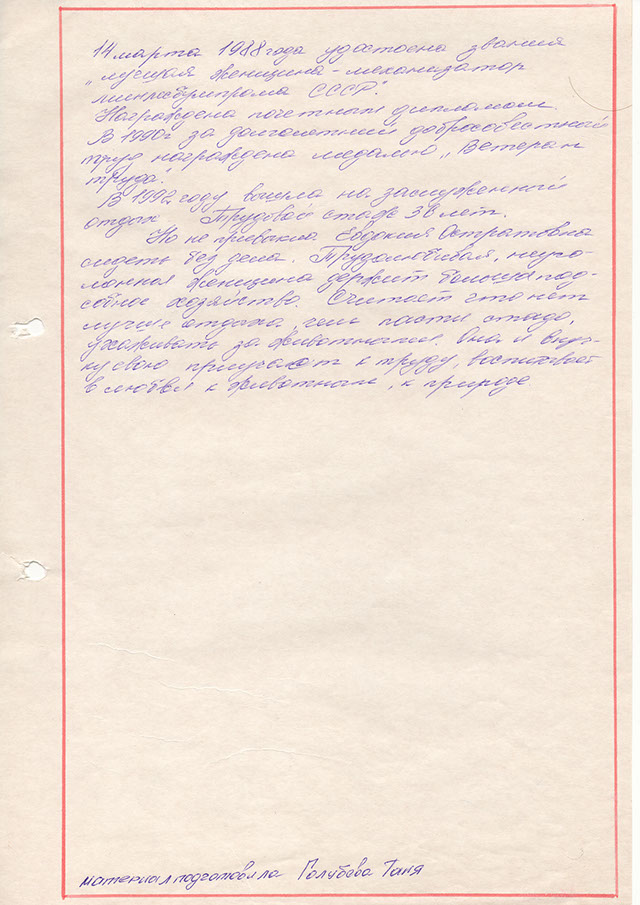 14 марта 1988 года удостоена звания
„Лучшая женщина-механизатор
Минлесбумпрома СССР".
Награждена почетным дипломом.
В 1990г за долголетний добросовестный
труд награждена медалью „Ветеран
труда".
В 1992 году вышла на заслуженный
отдых Трудовой стаж 38 лет.
Но не привыкла Евдокия Остратовна
сидеть без дела. Трудолюбивая, неуго-
монная женщина держит большое под-
собное хозяйство. Считает что нет
лучше отдыха, чем пасти стадо,
ухаживать за животными. Она и внуч-
ку свою приучает к труду, воспитывает
в любви к животным, к природе
материал подготовила Голубева Таня